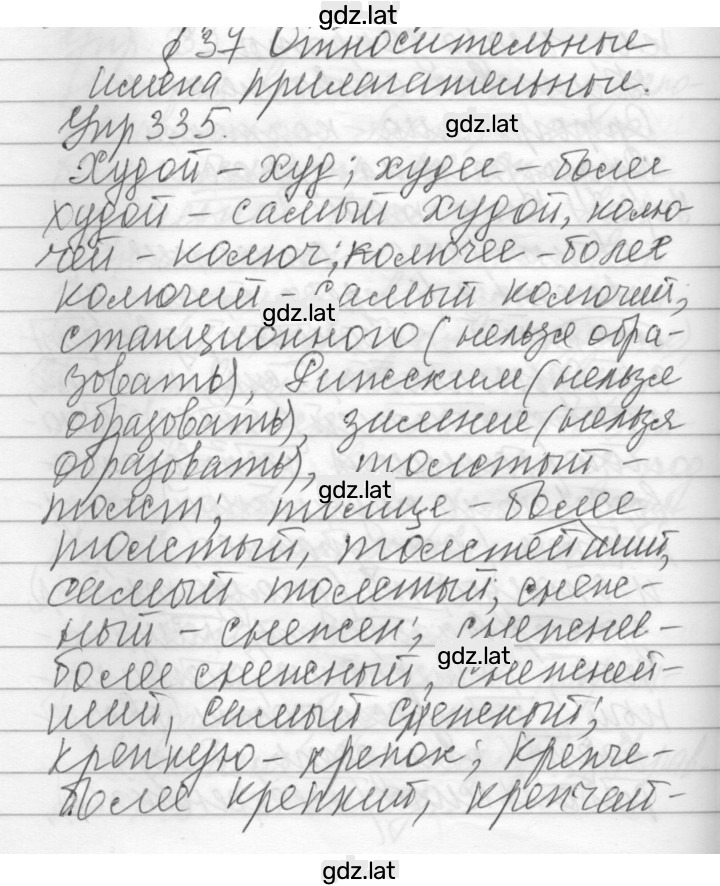 gdz.lat
§ 37 Относительные
имена прилагательные.
Упр 335.
gdz.lat
Худой – худ; худее – более
худой – самый худой, колю-
чей – колюч; колючее – более
колючий – самый колючий,
gdz.lat
станционного (нельзя обра-
зовать), Рижским (нельзя
образовать), зимние (нельзя
образовать), толстый –
gdz.lat
толст; толще – более
толстый, толстейший,
самый толстый; снеж-
ный – снежен; снежнее –
gdz.lat
более снежный, снежней-
ший, самый снежный;
крепкую – крепок; крепче –
более крепкий, крепчай-
gdz.lat